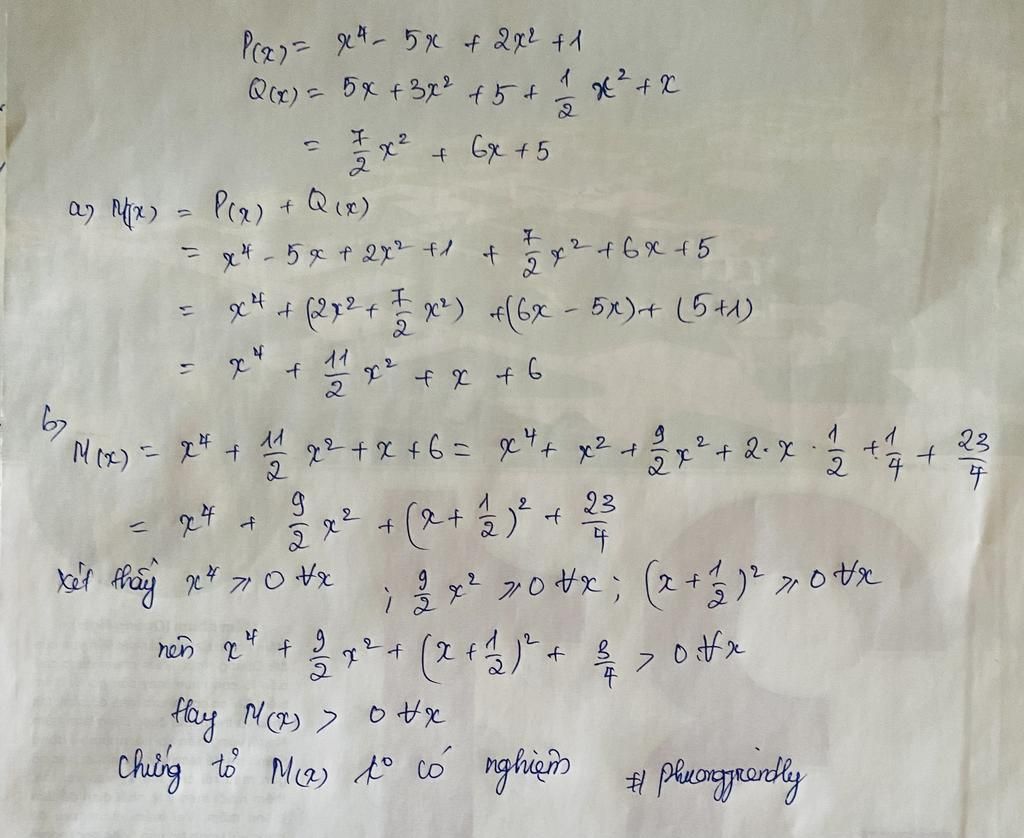 P(x) = x⁴ - 5x + 2x² + 1
Q(x) = 5x + 3x² + 5 + 1/2 x² + x
= 7/2 x² + 6x + 5
a) M(x) = P(x) + Q(x)
= x⁴ - 5x + 2x² + 1 + 7/2 x² + 6x + 5
= x⁴ + (2x² + 7/2 x²) + (6x - 5x) + (5+1)
= x⁴ + 11/2 x² + x + 6
b)
M(x) = x⁴ + 11/2 x² + x + 6 = x⁴ + x² + 9/2 x² + 2.x.1/2 + 1/4 + 23/4
= x⁴ + 9/2 x² + (x + 1/2)² + 23/4
xét thấy x⁴ ⩾ 0 ∀x ; 9/2 x² ⩾ 0 ∀x ; (x + 1/2)² ⩾ 0 ∀x
nên x⁴ + 9/2 x² + (x + 1/2)² + 3/4 > 0 ∀x
Hay M(x) > 0 ∀x
Chứng tỏ M(x) k° có nghiệm #phuongfriendly